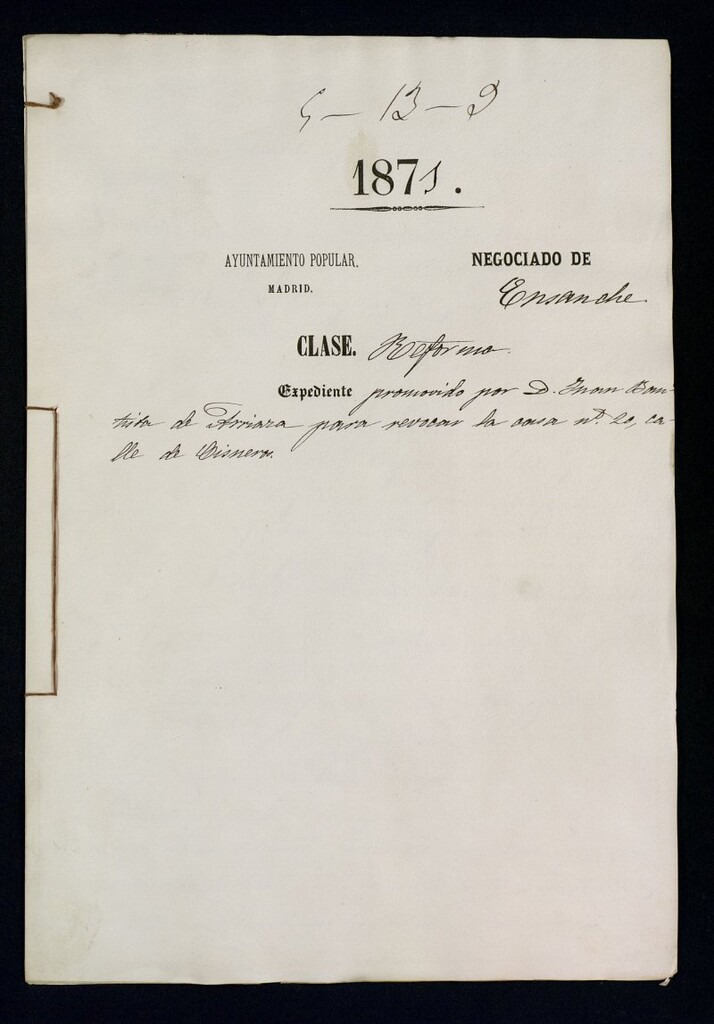 5-13-9
1871.
AYUNTAMIENTO POPULAR.
MADRID.
NEGOCIADO DE
Ensanche
CLASE. Reforma.
Expediente promovido por D. Juan Bau-
tista de Arriaza para revocar la casa nº 20, ca-
lle de Cisneros.